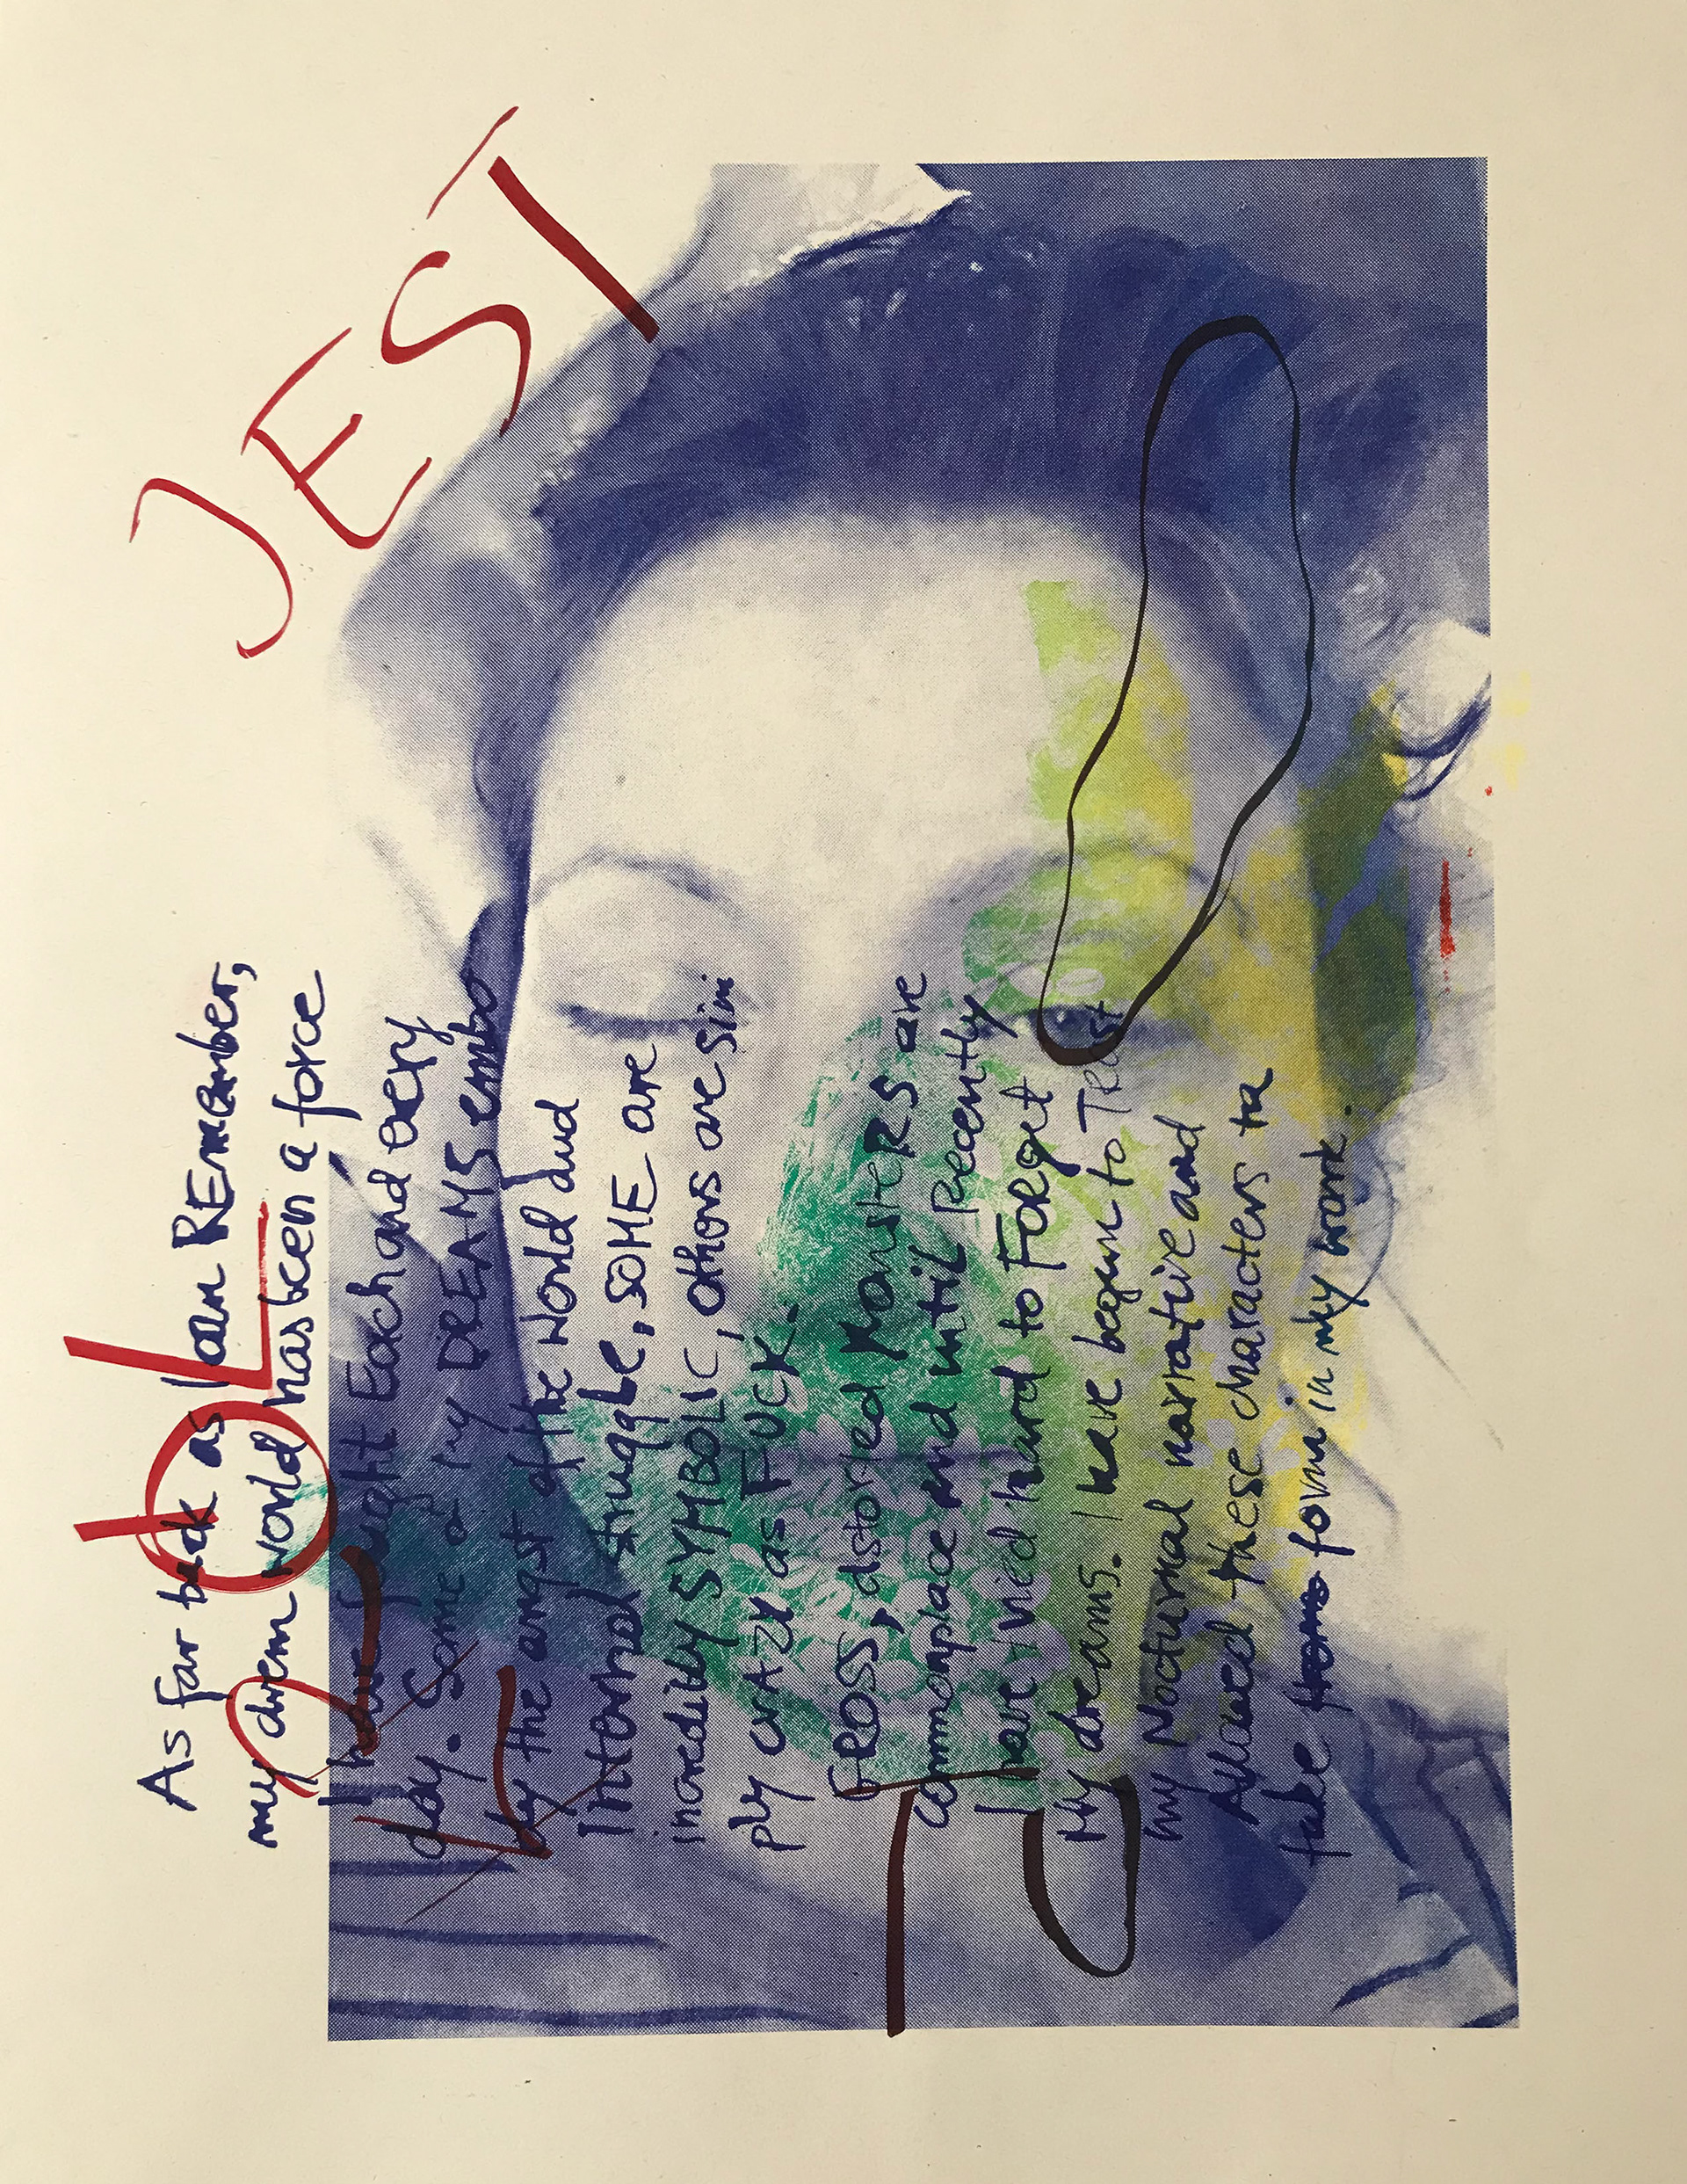 JEST
HOLD
As far back as I can REmember,
my drem world has been a force
I have fought Each and every
day. Some of my DREAMS embo
dy the angst of the world and
Internal struggle, SOME are
incredibly SYMBOLIC, others are sim
ply crAzy as FUCK.
GROSS, distorted MonsteRS are
commonplace and until Recently
I have tried hard to FORget
My dreams. I have begun to TRust
my Nocturnal narrative and
Allowed these characters to
take form in my work.